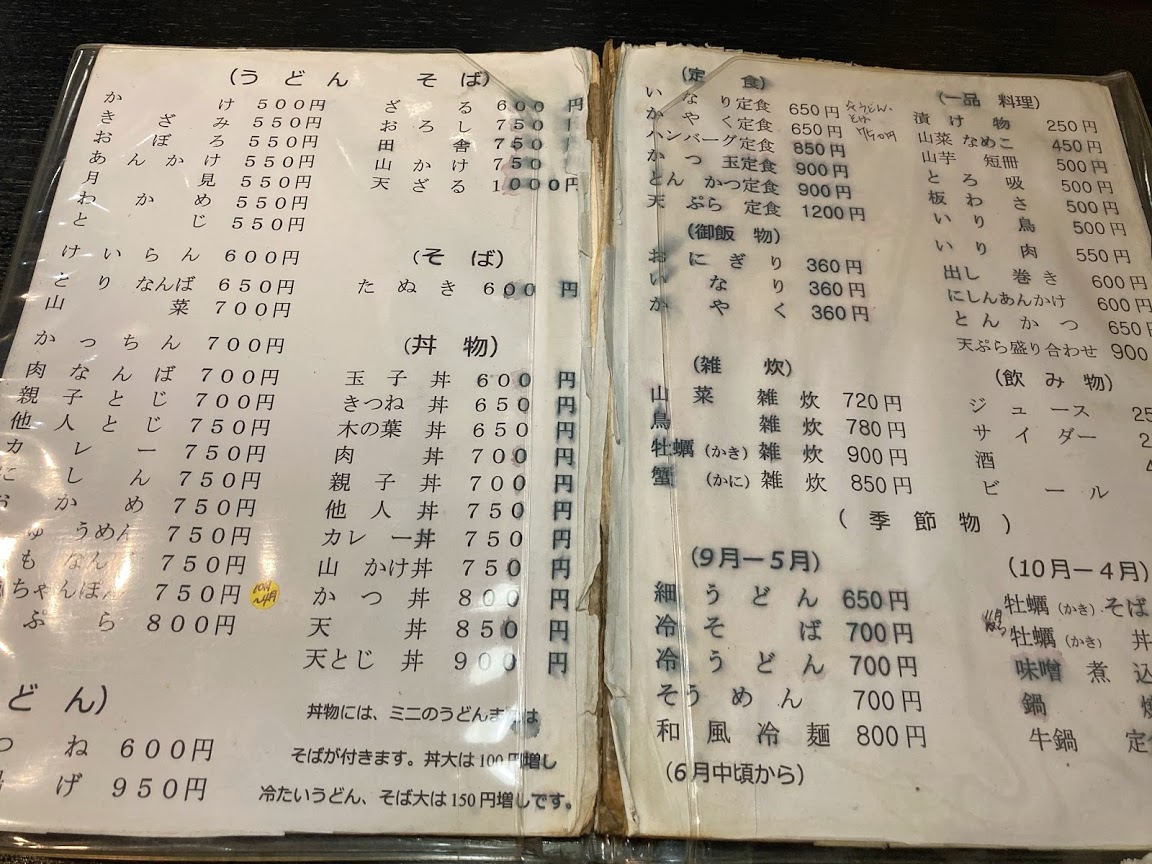 (うどん そば)
かけ 500円
きざみ 550円
おぼろ 550円
あんかけ 550円
月見 550円
わかめ 550円
とじ 550円
けいらん 600円
とりなんば 650円
山菜 700円
かっちん 700円
肉なんば 700円
親子とじ 700円
他人とじ 750円
カレー 750円
にしん 750円
おかめ 750円
ゅうめん 750円
もなん 750円
ちゃんぽん 750円
10月~4月
ぷら 800円
どん)
つね 600円
げ 950円
ざる 600円
おろし 750円
田舎 750円
山かけ 750円
天ざる 1000円
(そば)
たぬき 600円
(丼物)
玉子丼 600円
きつね丼 650円
木の葉丼 650円
肉丼 700円
親子丼 700円
他人丼 750円
カレー丼 750円
山かけ丼 750円
かつ丼 800円
天丼 850円
天とじ丼 900円
丼物には、ミニのうどんまたは
そばが付きます。丼大は100円増し
冷たいうどん、そば大は150円増しです。
(定食)
いなり定食 650円
かやく定食 650円
ハンバーグ定食 850円
かつ玉定食 900円
とんかつ定食 900円
天ぷら定食 1200円
(御飯物)
おにぎり 360円
いなり 360円
かやく 360円
(雑炊)
山菜雑炊 720円
鳥雑炊 780円
牡蠣(かき)雑炊 900円
蟹(かに)雑炊 850円
(一品料理)
漬け物 250円
山菜なめこ 450円
山芋短冊 500円
とろ吸 500円
板わさ 500円
いり鳥 500円
いり肉 550円
出し巻き 600円
にしんあんかけ 600円
とんかつ 650円
天ぷら盛り合わせ 900
(飲み物)
ジュース 25
サイダー 2
酒
ビール
(季節物)
(9月ー5月)
細うどん 650円
冷そば 700円
冷うどん 700円
そうめん 700円
和風冷麺 800円
(6月中頃から)
(10月ー4月)
牡蠣(かき)そば
牡蠣(かき)丼
味噌煮込
鍋焼
牛鍋定